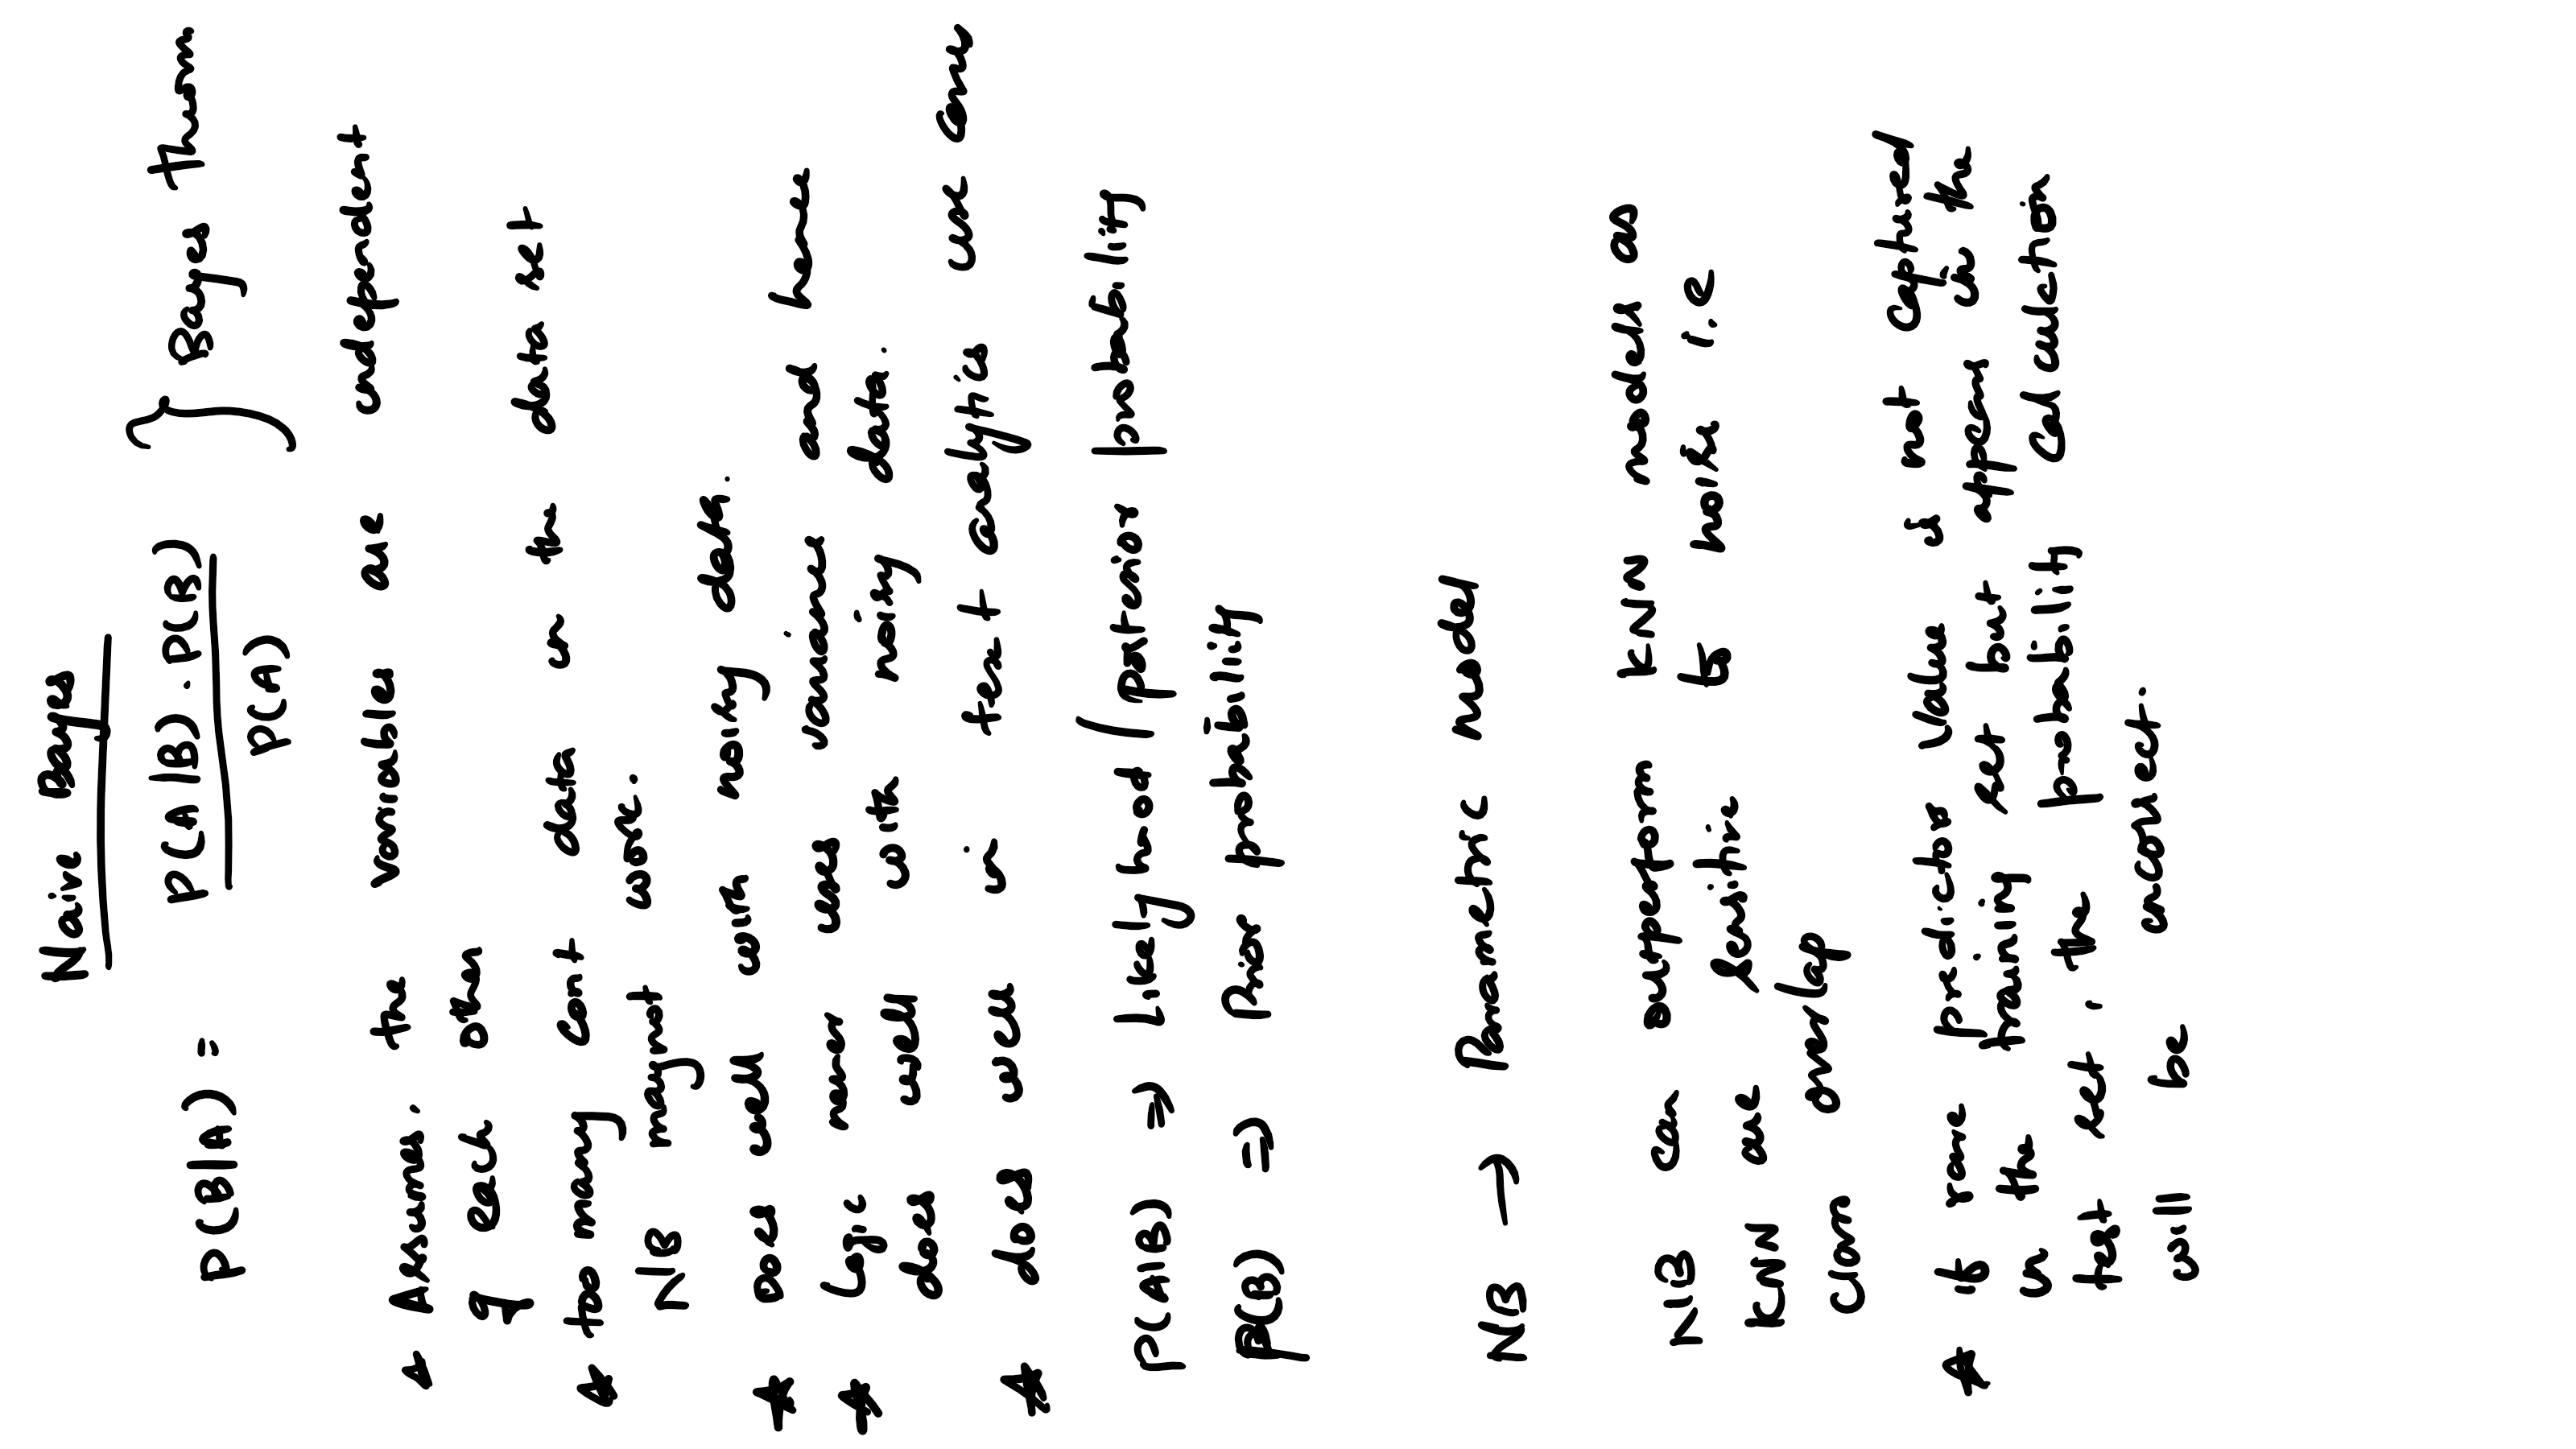 Naive Bayes
P(B|A) = P(A|B) . P(B) / P(A) } Bayes Theorem
* Assumes. the variables are independent
of each other
* too many cont data in the data set
NB maynot work.
* Does well with noisy data.
* Logic never uses variance and hence
does well with noisy data.
* does well in text analytics use cases
P(A|B) => Likelyhood / posterior probability
P(B) => Prior probability
NB → Parametric model
NB can outperform KNN models as
KNN are sensitive to noise i.e
class overlap
* If rare predictor value is not captured
in the training set but appears in the
test set, the probability calculation
will be incorrect.